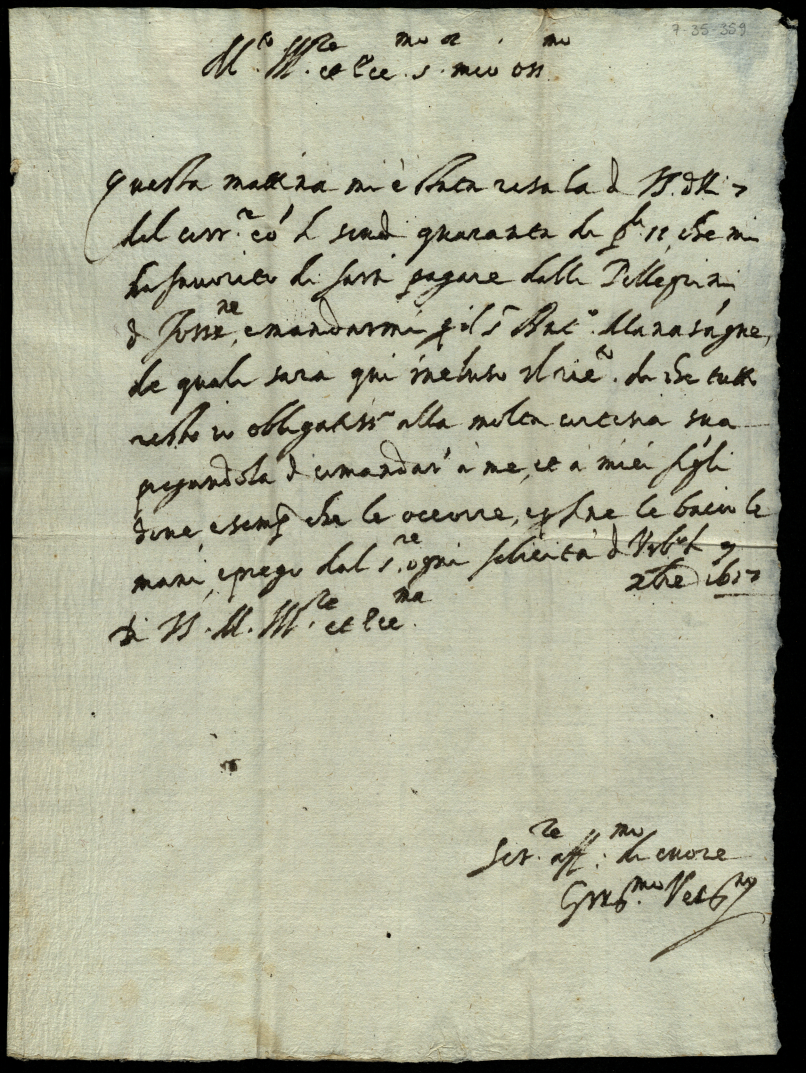 7-35-359
M.to M.re et Ecc.mo s.r mio oss.mo
Questa mattina mi è stata resa la d V.S. delli 7
del corr.te co' li scudi quaranta di che mi
ha favorito di farsi pagare dalli Pellegrini
d e mandarmi p il s.r Ant.o
le quali sara qui incluso il ric.to di che tutto
resto io obligatiss.o alla molta cortesia sua
pregandola d comandar' à me, et à miei figli
dove e semp che le occorre, e p fine le bacio le
mani, e prego dal s.re ogni felicità d Urb.o li 9
xbre 1617
Di V.S. M. M.re et Ecc.ma
Ser.re aff.mo di cuore